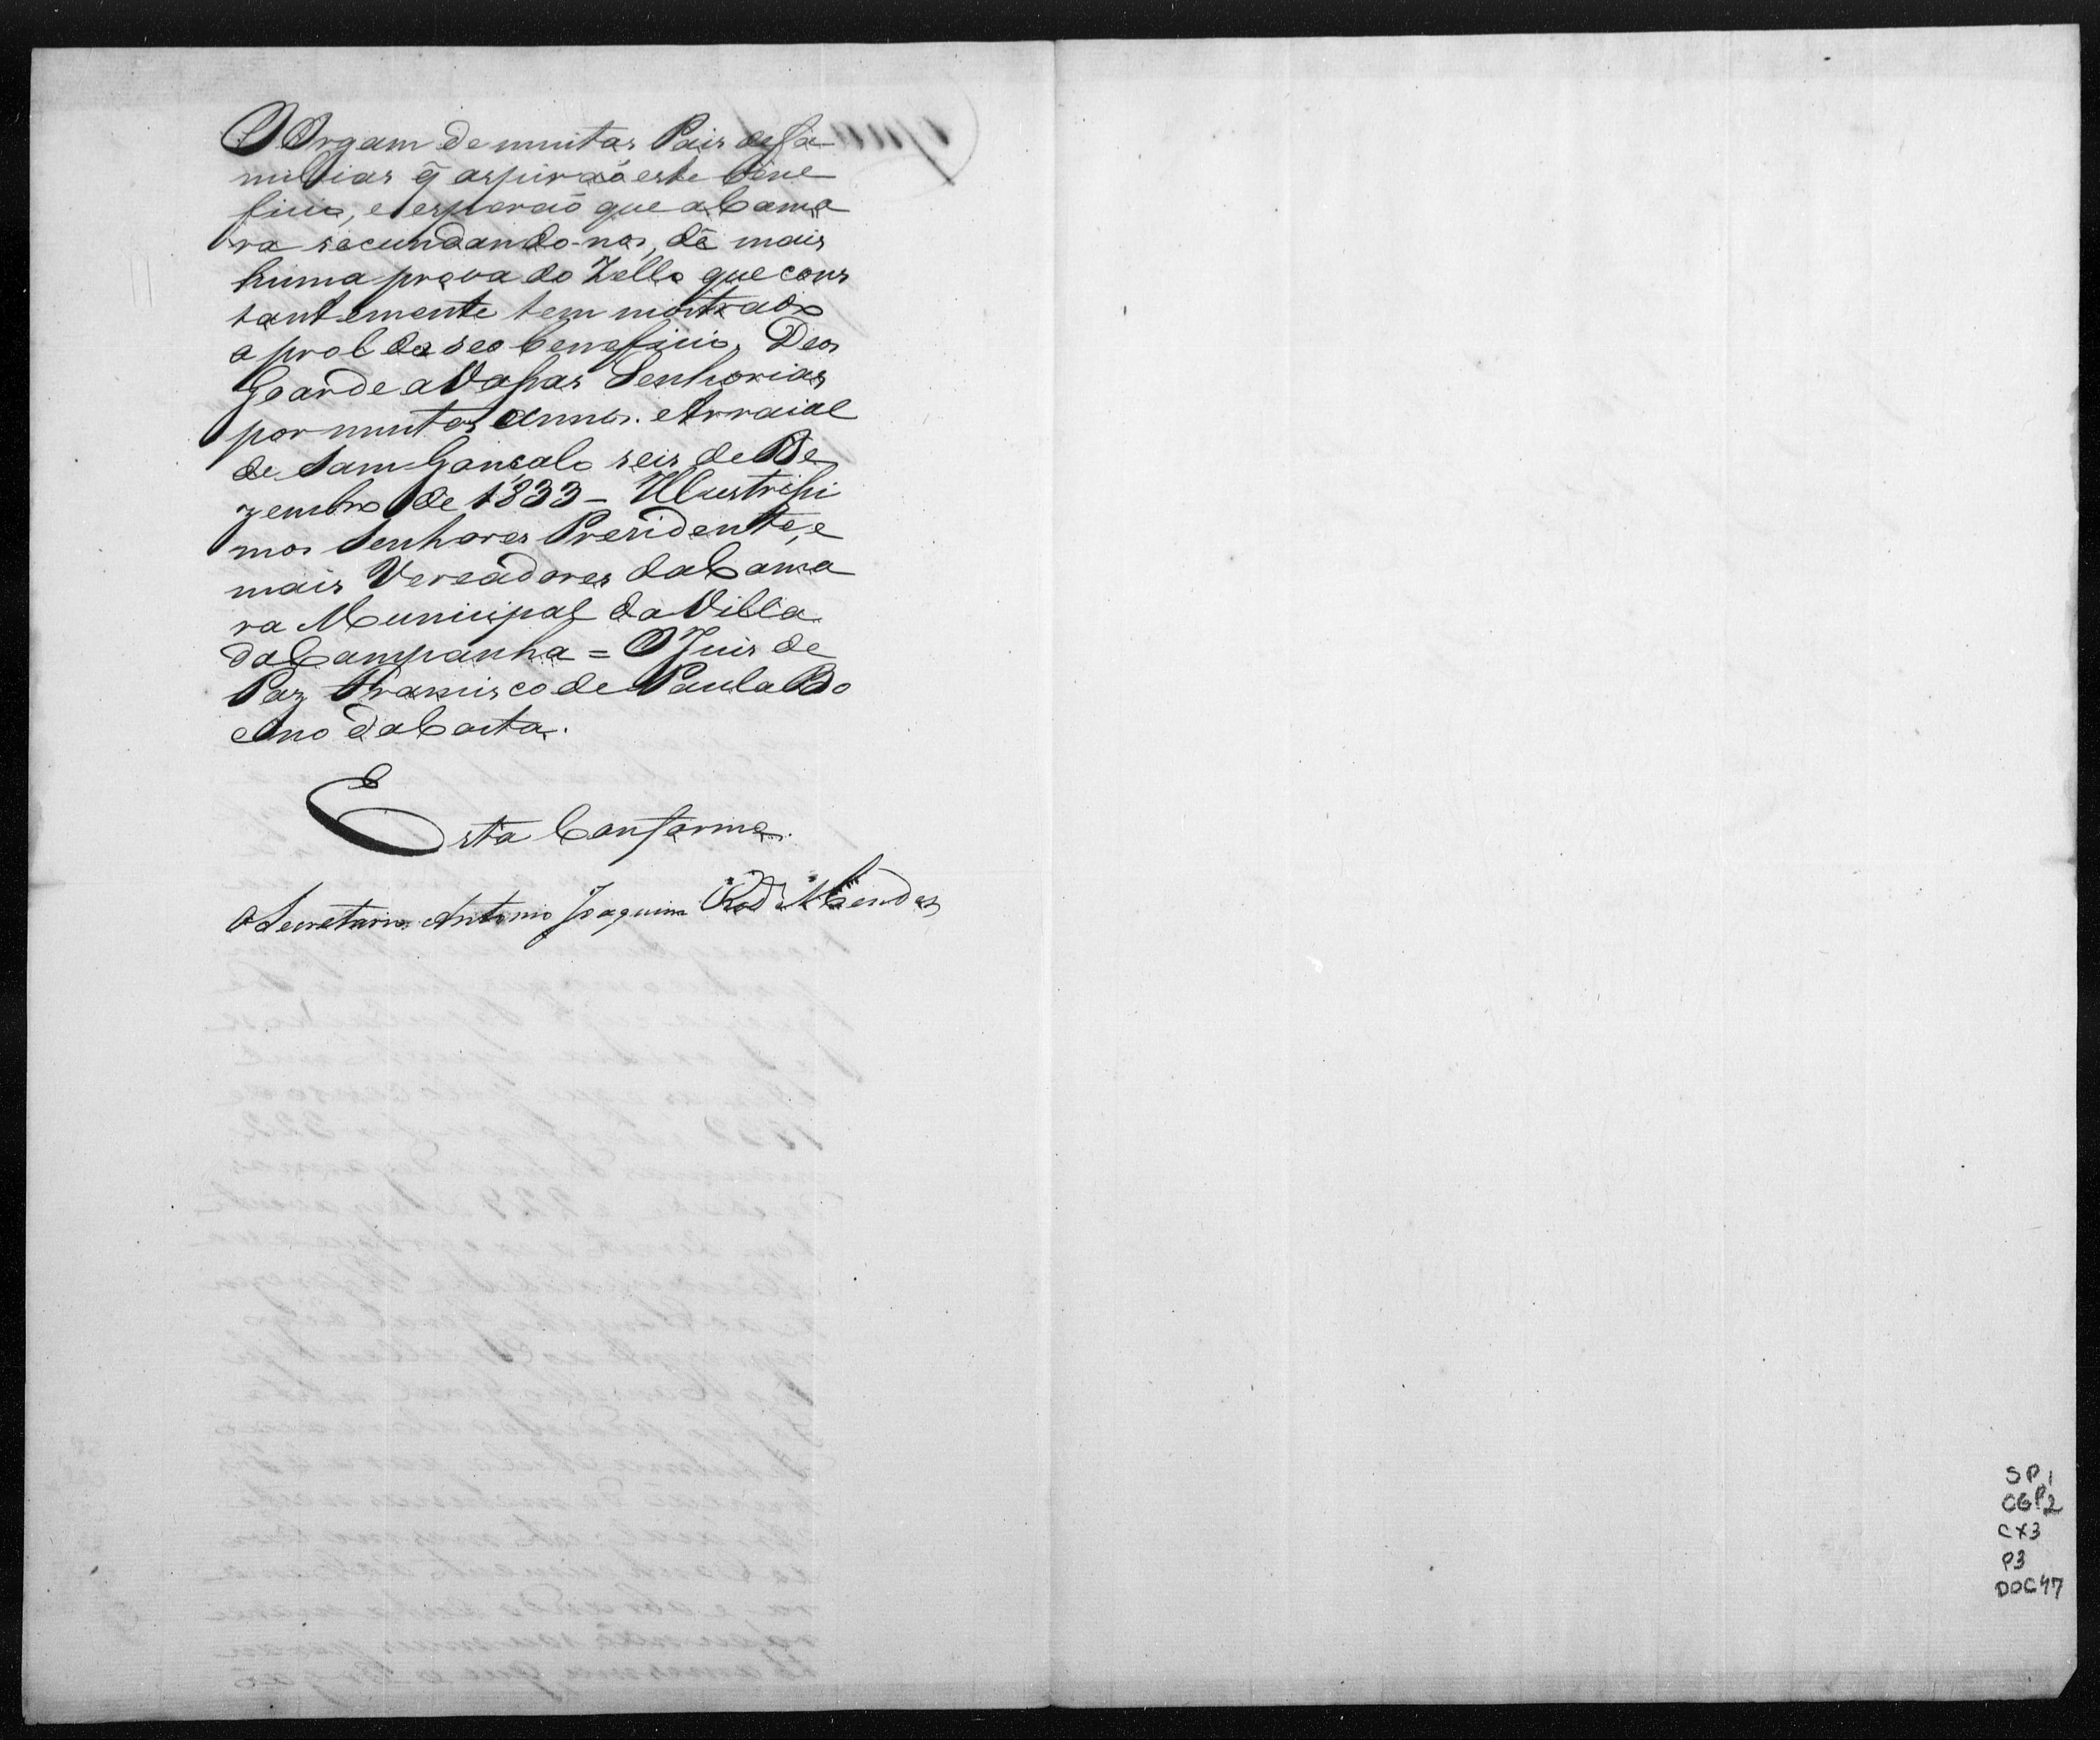 O Orgam de muitos Pais de fa-
milias q̃ aspirão á este bene
ficio, e esperaõ que a Cama
ra secundando-nos, dê mais
huma prova do Zello que cons
tantemente tem mostrado
a prol do seo beneficio. Deos
Goarde a Vossas Senhorias
por muitos annos. Arraial
de Sam Gonçalo seis de De
zembro de 1833 - Illustrissi
mos Senhores Presidente, e
mais Vereadores da Cama
ra Municipal da Villa
da Campanha = O Juis de
Paz Francisco de Paula Bo
eno da Costa.
Esta Conforme.
O Secretario Antonio Joaquim Rod.ˢ Mendes
SP1
CGP2
CX3
P3
DOC47